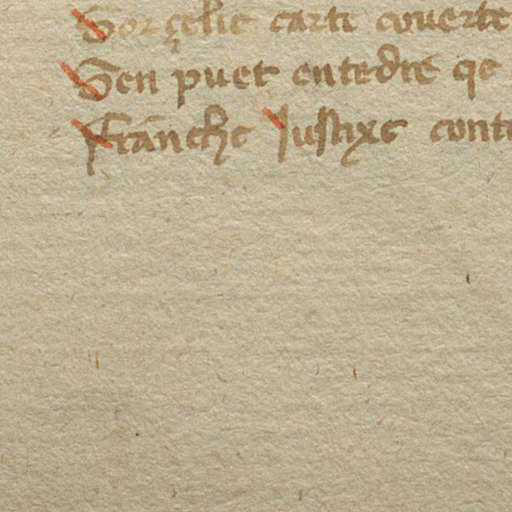 Sor çelie carte couerte
Sen puet entẽdre qe
Frãnche Justixe cont